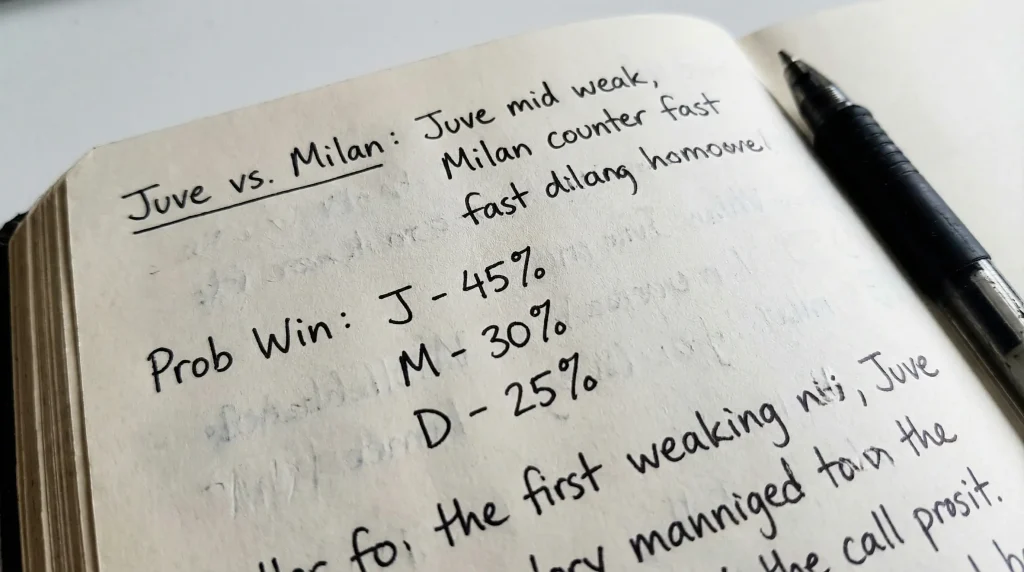 Juve vs. Milan: Juve mid weak,
Milan counter fast
fast dilang
Prob Win: J - 45%
M - 30%
D - 25%
the first weaking Juve
manniged the
the call prosit.